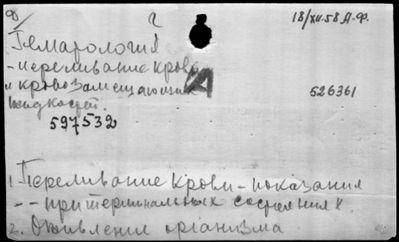 2
18/XII.58 А.Ф.
Гематология
- переливание крови
и кровозамещающих
жидкостей.
526361
597532
1. Переливание крови – показания
– – при терминальных состояниях.
2. Оживление организма